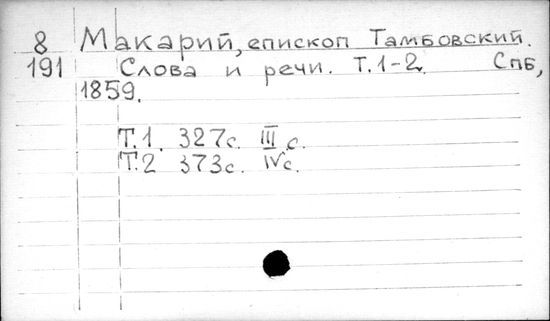 8 Макарий, епископ Тамбовский.
191 Слова и речи. Т.1-2. Спб,
1859.
Т.1. 327с. III с.
Т.2 373с. IVс.